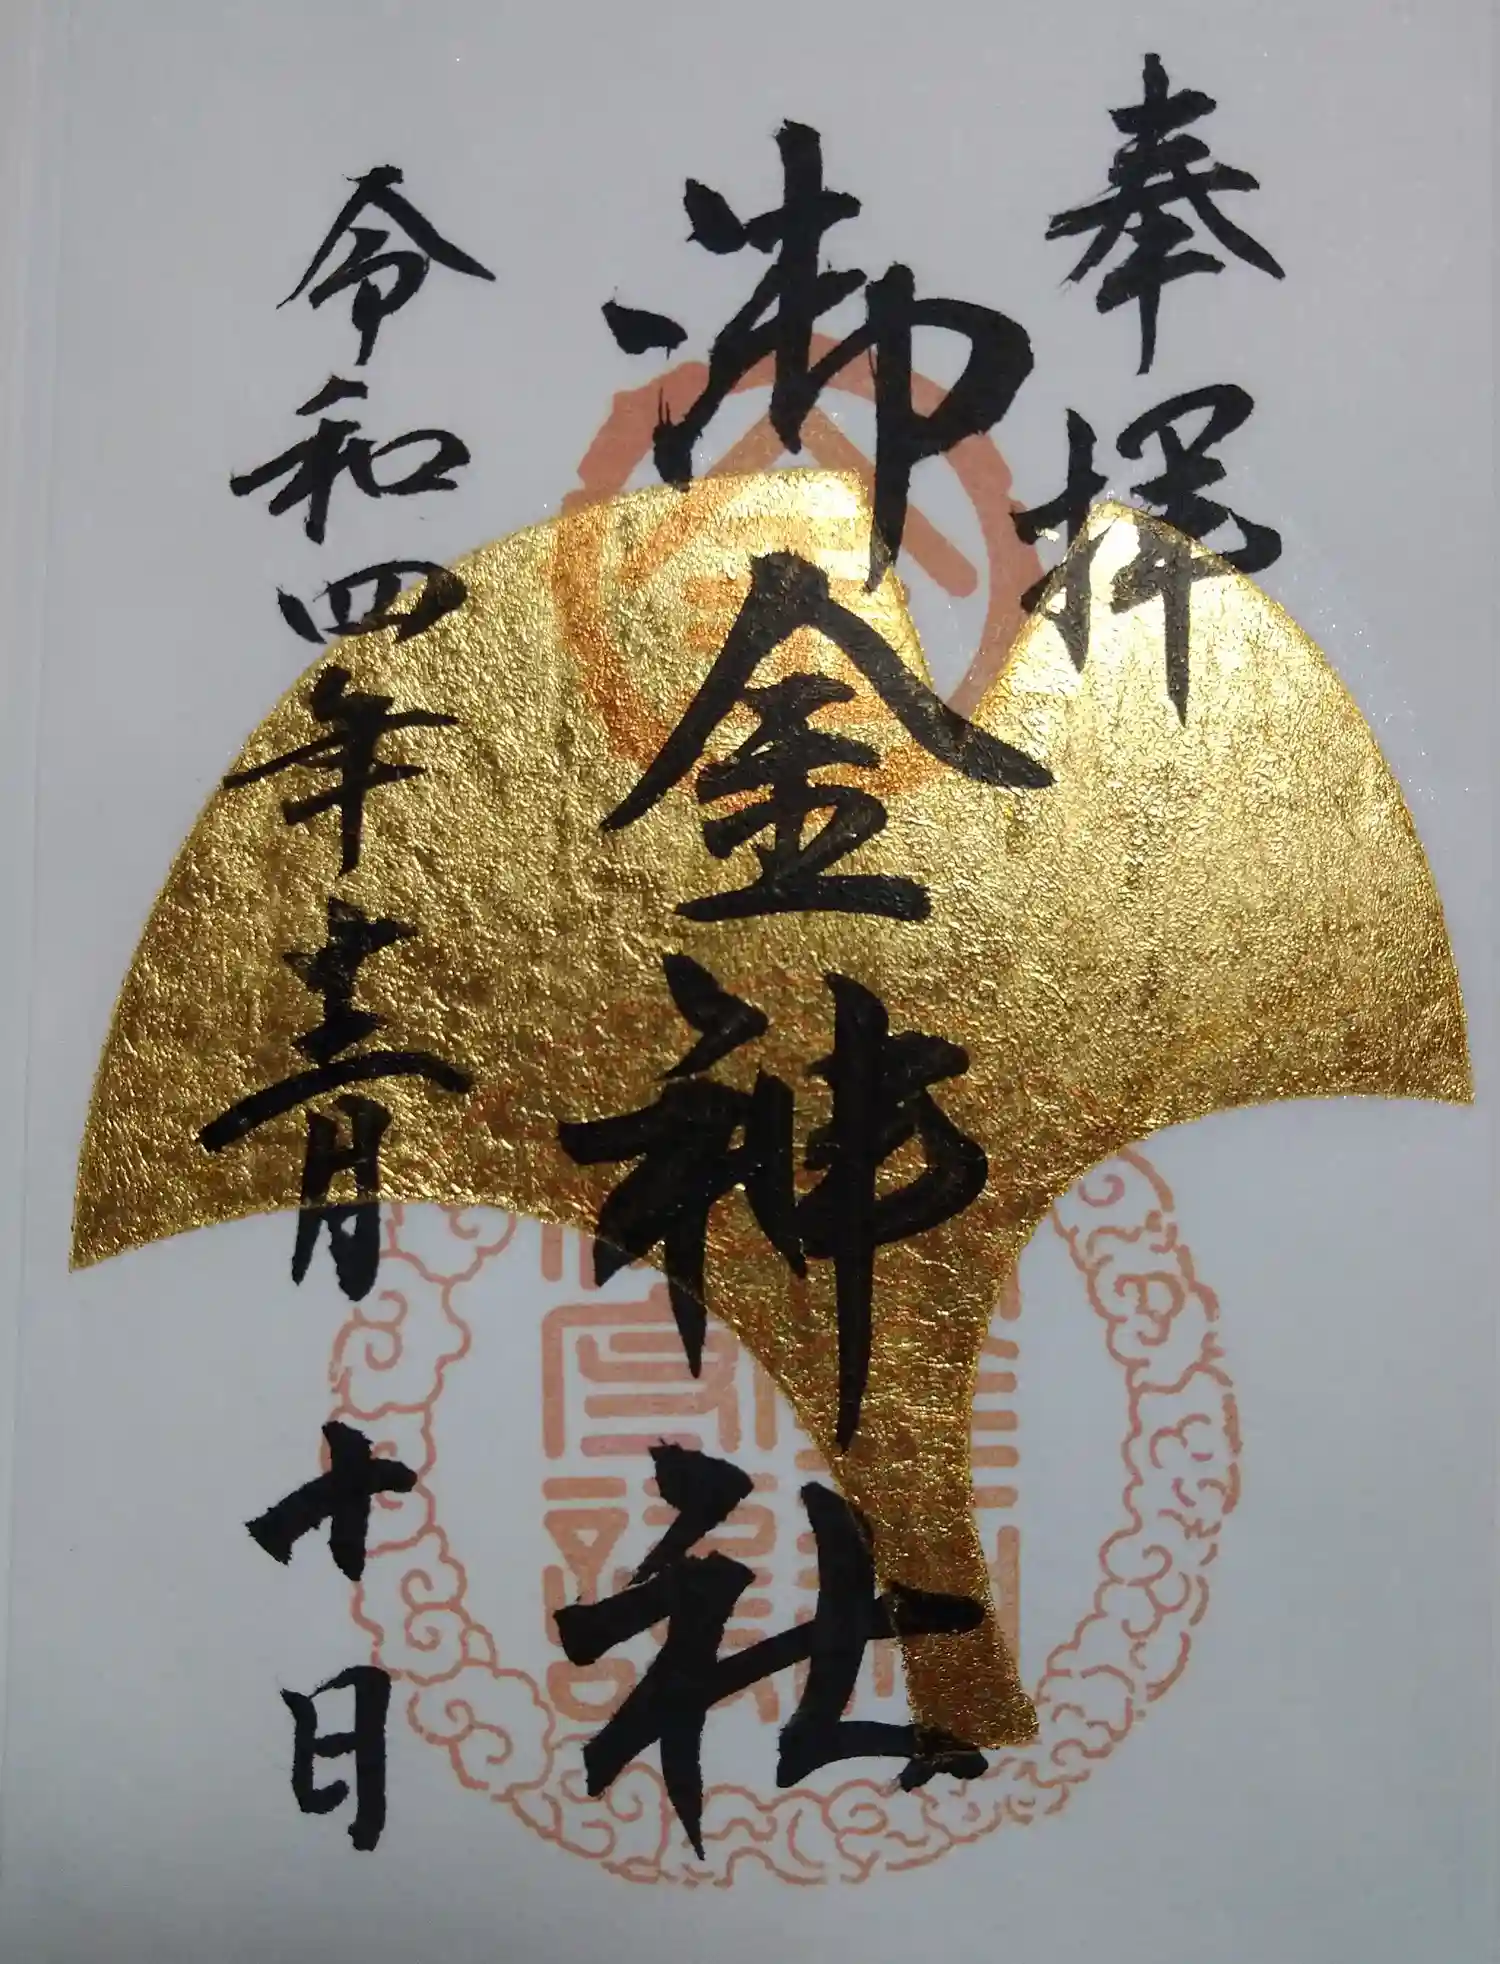 奉拝
御金神社
令和四年十二月十日
金